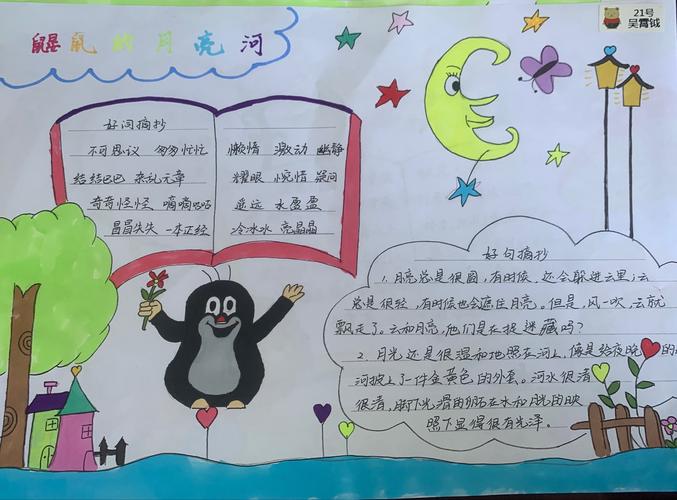 鼹鼠的月亮河
21号
吴霄钺
好词摘抄
不可思议 匆匆忙忙
结结巴巴 杂乱无章
奇奇怪怪 嘀嘀咕咕
冒冒失失 一本正经
懒惰 激动 幽静
耀眼 惋惜 疑问
遥远 水盈盈
冷冰冰 亮晶晶
好句摘抄
1.月亮总是很圆,有时候,还会躲进云里;云
总是很轻,有时候也会遮住月亮。但是,风一吹,云就
飘走了。云和月亮,他们是在捉迷藏吗?
2.月光还是很温和地照在河上,像是给夜晚的
河披上了一件金黄色的外套。河水很清
很清,脚下光滑的卵石在水和月光的映
照下显得很有光泽。